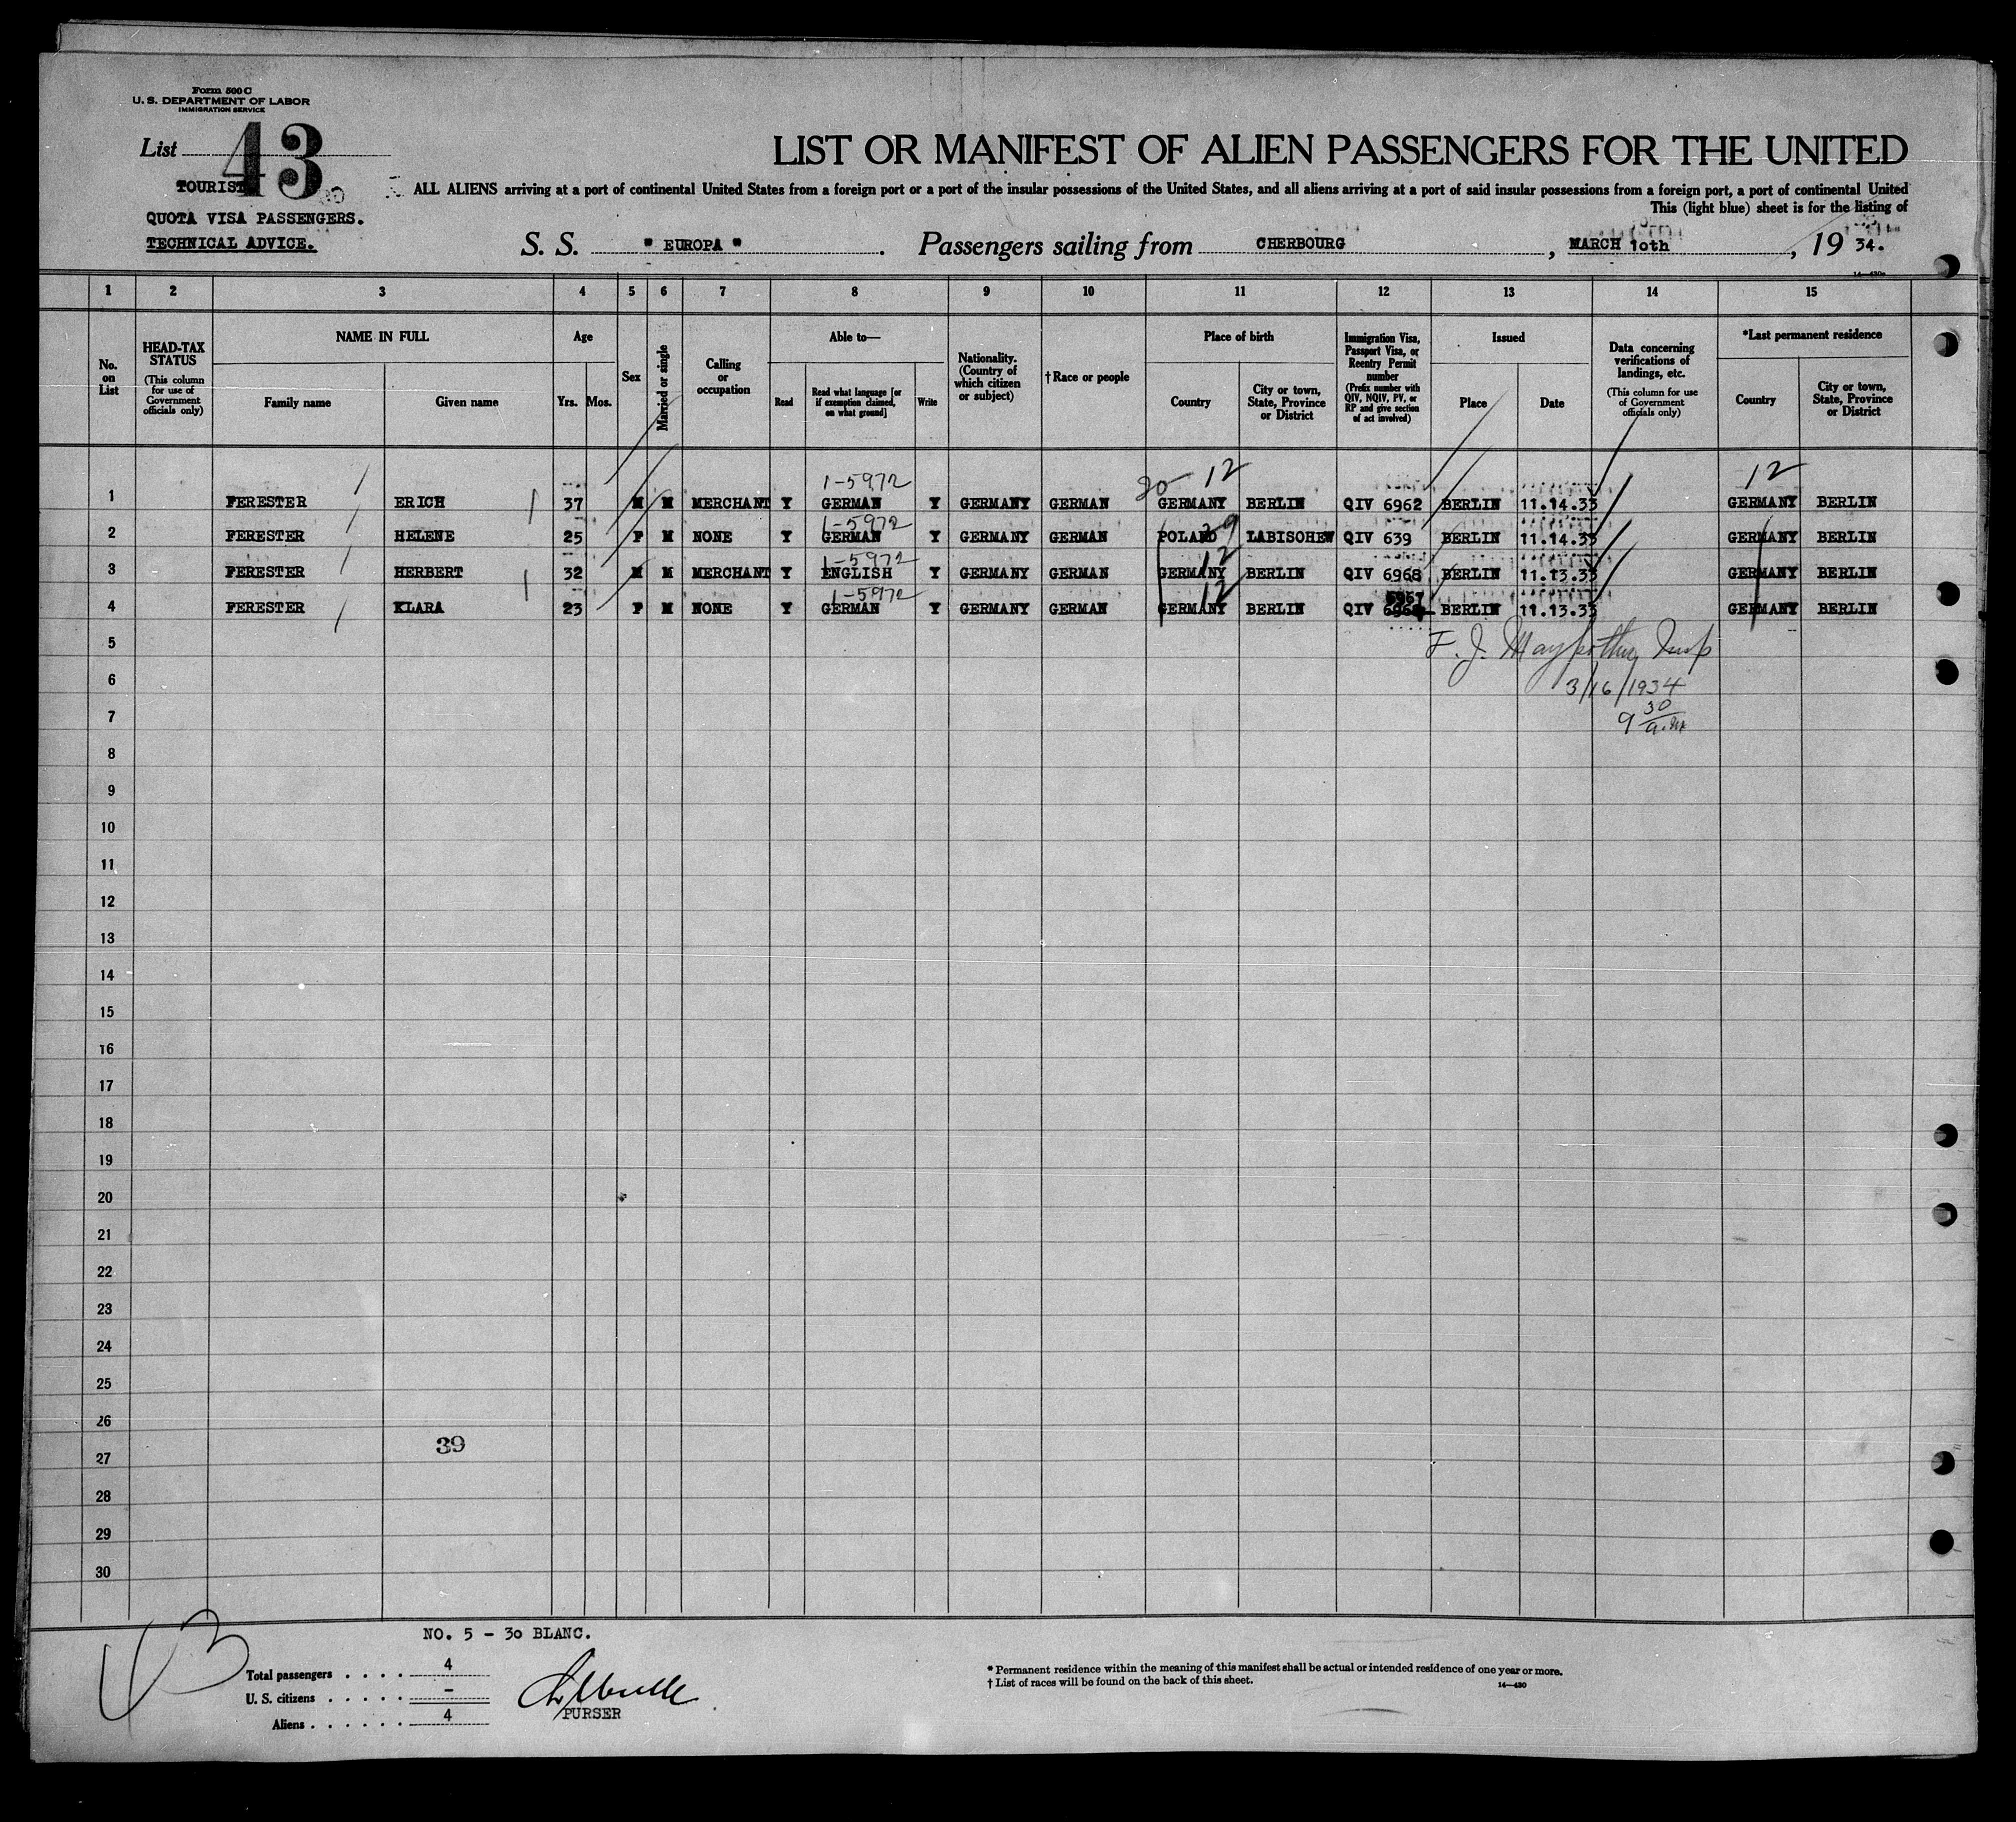 Form 500 C
U. S. DEPARTMENT OF LABOR
IMMIGRATION SERVICE
List 43
TOURIST
QUOTA VISA PASSENGERS.
TECHNICAL ADVICE.
LIST OR MANIFEST OF ALIEN PASSENGERS FOR THE UNITED
ALL ALIENS arriving at a port of continental United States from a foreign port or a port of the insular possessions of the United States, and all aliens arriving at a port of said insular possessions from a foreign port, a port of continental United
This (light blue) sheet is for the listing of
S. S. " EUROPA " . Passengers sailing from CHERBOURG , MARCH 10th , 19 34.
1 2 3 4 5 6 7 8 9 10 11 12 13 14 15
No. on List
HEAD-TAX STATUS (This column for use of Government officials only)
NAME IN FULL
Family name Given name
Age
Yrs. Mos.
Sex
Married or single
Calling or occupation
Able to—
Read Read what language [or if exemption claimed, on what ground] Write
Nationality. (Country of which citizen or subject)
† Race or people
Place of birth
Country City or town, State, Province or District
Immigration Visa, Passport Visa, or Reentry Permit number (Prefix number with QIV, NQIV, PV, or RP and give section of act involved)
Issued
Place Date
Data concerning verifications of landings, etc. (This column for use of Government officials only)
*Last permanent residence
Country City or town, State, Province or District
1-5972 20 12 12
1 FERESTER ERICH 37 M M MERCHANT Y GERMAN Y GERMANY GERMAN GERMANY BERLIN QIV 6962 BERLIN 11.14.33 GERMANY BERLIN
1-5972 29
2 FERESTER HELENE 25 F M NONE Y GERMAN Y GERMANY GERMAN POLAND LABISOHEW QIV 639 BERLIN 11.14.33 GERMANY BERLIN
1-5972 12
3 FERESTER HERBERT 32 M M MERCHANT Y ENGLISH Y GERMANY GERMAN GERMANY BERLIN QIV 6968 BERLIN 11.13.33 GERMANY BERLIN
1-5972 12
4 FERESTER KLARA 23 F M NONE Y GERMAN Y GERMANY GERMAN GERMANY BERLIN QIV BERLIN 11.13.33 GERMANY BERLIN
5
F. J. Insp
6
3/16/1934
7
9 30 a.m
8
9
10
11
12
13
14
15
16
17
18
19
20
21
22
23
24
25
26
39
27
28
29
30
43
NO. 5 - 30 BLANC.
Total passengers . . . . 4
U. S. citizens . . . . . -
Aliens . . . . . . 4
PURSER
* Permanent residence within the meaning of this manifest shall be actual or intended residence of one year or more.
† List of races will be found on the back of this sheet.
14—430